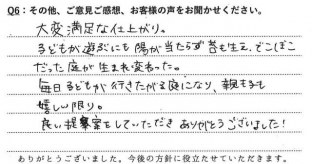 Q6：その他、ご意見ご感想、お客様の声をお聞かせください。
大変満足な仕上がり。
子どもが遊ぶにも陽が当たらず苔も生え、でこぼこ
だった庭が生まれ変わった。
毎日子どもが行きたがる庭になり、親も子も
嬉しい限り。
良い提案をしていただきありがとうございました！
ありがとうございました。今後の方針に役立たせていただきます。